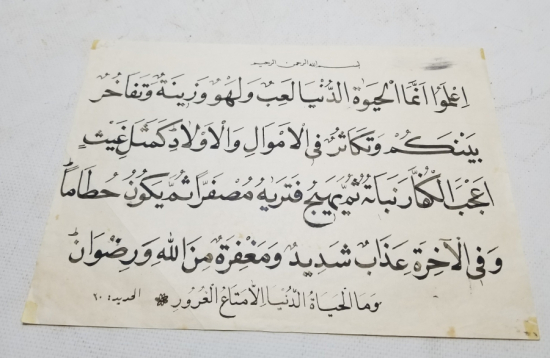 بسم الله الرحمن الرحيم
اِعْلَمُوا اَنَّمَا الْحَيٰوةُ الدُّنْيَا لَعِبٌ وَلَهْوٌ وَزِينَةٌ وَتَفَاخُرٌ
بَيْنَكُمْ وَتَكَاثُرٌ فِي الْاَمْوَالِ وَالْاَوْلَادِ كَمَثَلِ غَيْثٍ
اَعْجَبَ الْكُفَّارَ نَبَاتُهُ ثُمَّ يَهِيجُ فَتَرٰيهُ مُصْفَرًّا ثُمَّ يَكُونُ حُطَامًا
وَفِي الْاٰخِرَةِ عَذَابٌ شَدِيدٌ وَمَغْفِرَةٌ مِنَ اللهِ وَرِضْوَانٌ
وَمَا الْحَيَاةُ الدُّنْيَا اِلَّا مَتَاعُ الْغُرُورِ الحديد: ٢٠